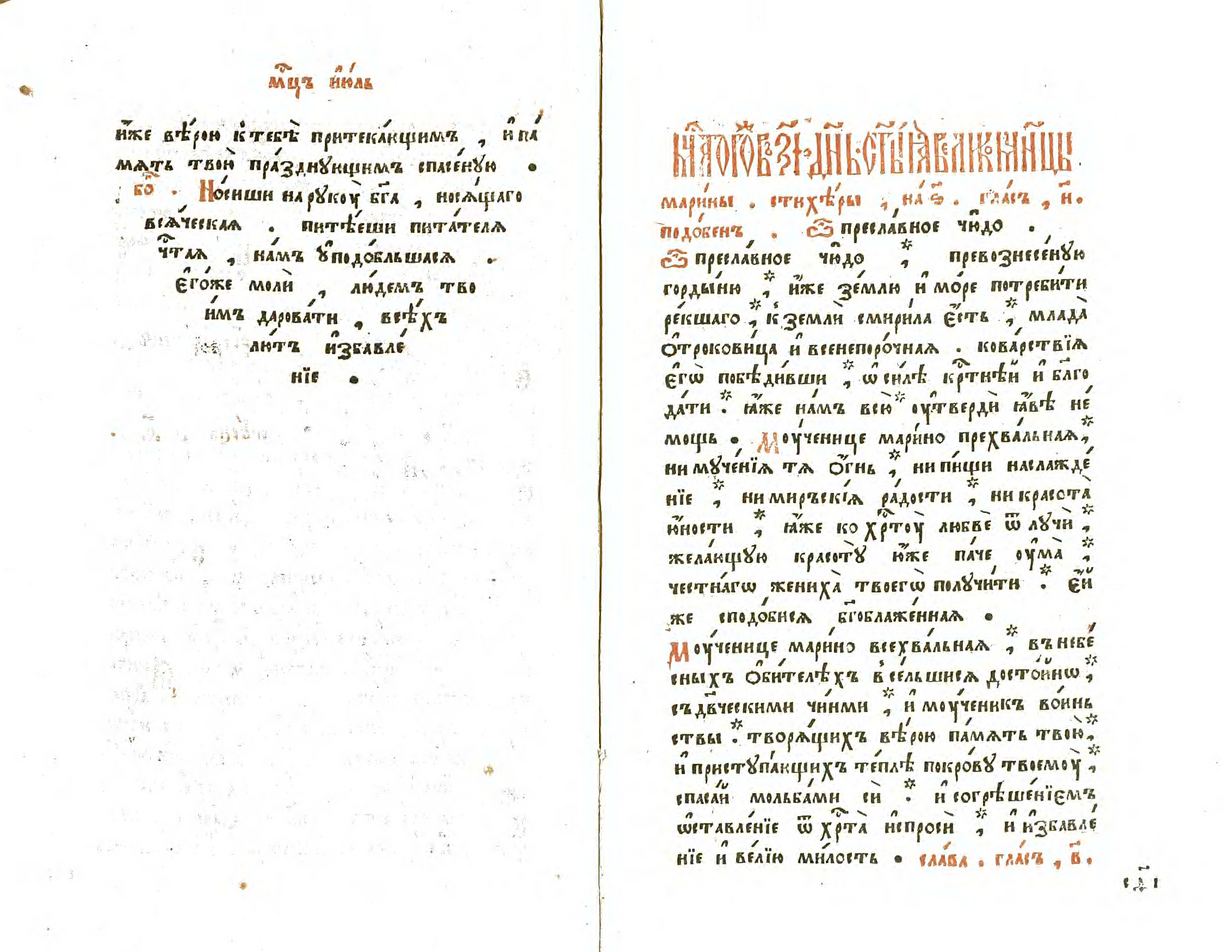 мⷭ҇цъ і҆ю́ль
и҆́же вѣ́рою к̾ тебѣ̀ притека́ющимъ , и҆ па́
мять твою̀ пра́зднующимъ спасе́ную .
бо҃ . Но́сиши на рꙋкоу̀ бг҃а , нося́щаго
вся́ческая . пита́еши пита́теля
чⷭ҇тая , на́мъ ᲂу҆подо́бльшася .
є҆го́же молѝ , лю́демъ тво
и҆́мъ дарова́ти , всѣ́хъ
лю́тъ и҆збавле́
нїе .
мⷭ҇ца того́же въ з҃і , дн҃ь . ст҃ы́ѧ великомч҃нцы
мари́ны . стихѣ́ры , на ѕ҃ . гла́съ , и҃ .
подо́бенъ . Ѽ пресла́вное чю́до .
Ѽ пресла́вное чю́до *, превознесе́нꙋю
горды́ню *, и҆́же зе́млю и҆ мо́ре потреби́ти
ре́кшаго *, к̾ землѝ смири́ла є҆́сть *, млада̀
ѻ҆трокови́ца и҆ всенепоро́чная . кова́рствїя
є҆гѡ̀ побѣди́вши *, ѡ҆ си́лѣ крⷭ҇тнѣй и҆ бл҃го
да́ти . * ꙗ҆́же на́мъ всю̀ * ᲂу҆твердѝ ꙗ҆́вѣ не́
мощь . Моу́ченице мари́но прехва́льная *,
ни мꙋче́нїя тя ѻ҆́гнь *, ни пи́щи наслажде́
нїе *, ни ми́рьскїя ра́дости *, ни красота̀
ю҆́ности *, ꙗ҆́же ко хрⷭ҇тоу̀ любвѐ ѿлꙋчѝ *,
жела́ющꙋю красотꙋ̀ ю҆́же па́че ᲂу҆ма̀ *,
че́стнагѡ жениха̀ твоегѡ̀ полꙋчи́ти . * є҆́й
же сподо́бися бг҃облаже́нная .
Моу́ченице мари́но всехва́льная *, въ небе́
сныхъ ѻ҆би́телѣхъ всельшися досто́йнѡ *,
съ дв҃ческими чи́ними *, и҆ моу́ченикъ во́инь
ствы . * творя́щихъ вѣ́рою па́мять твою̀ *,
и҆ пристꙋпа́ющихъ те́плѣ покро́вꙋ твоемоу̀ *,
спаса́й мольба́ми сѝ . * и҆ согрѣше́нїемъ
ѡ҆ставле́нїе ѿ хрⷭ҇та̀ и҆спросѝ *, и҆ и҆збавле́
нїе и҆ ве́лїю ми́лость . сла́ва . гла́съ , в҃ .